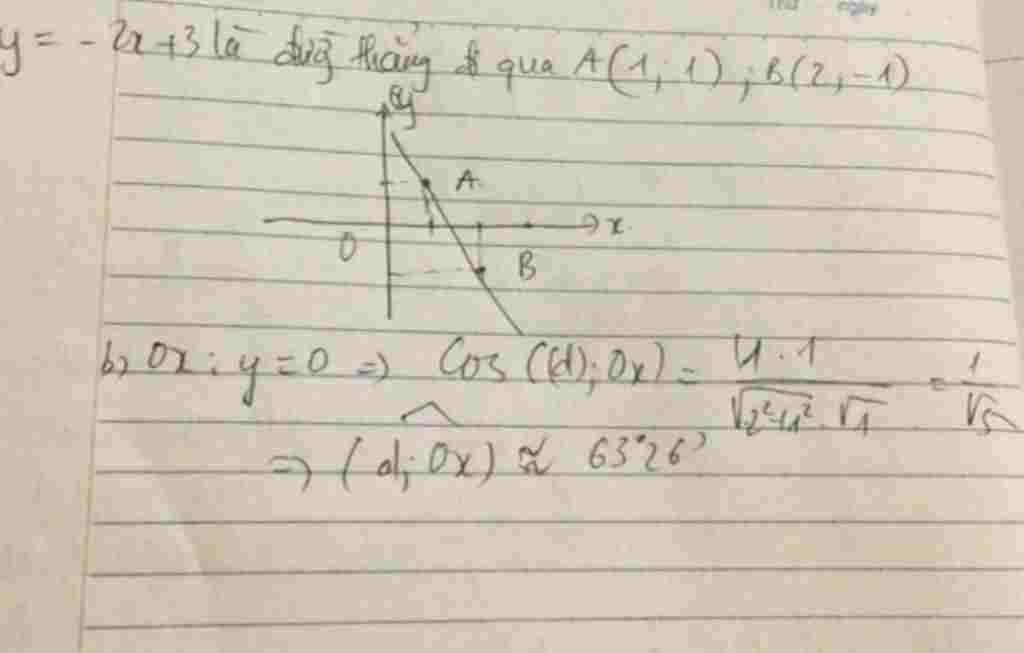 Thứ ngày
y = - 2x + 3 là đường thẳng đi qua A(1; 1) ; B(2; -1)
y
A
x
O
B
b) Ox : y = 0 => Cos ((d); Ox) = \frac{|1 . 1|}{\sqrt{2^2+1^2} . \sqrt{1}} = \frac{1}{\sqrt{5}}
=> (d; Ox) ≈ 63°26'